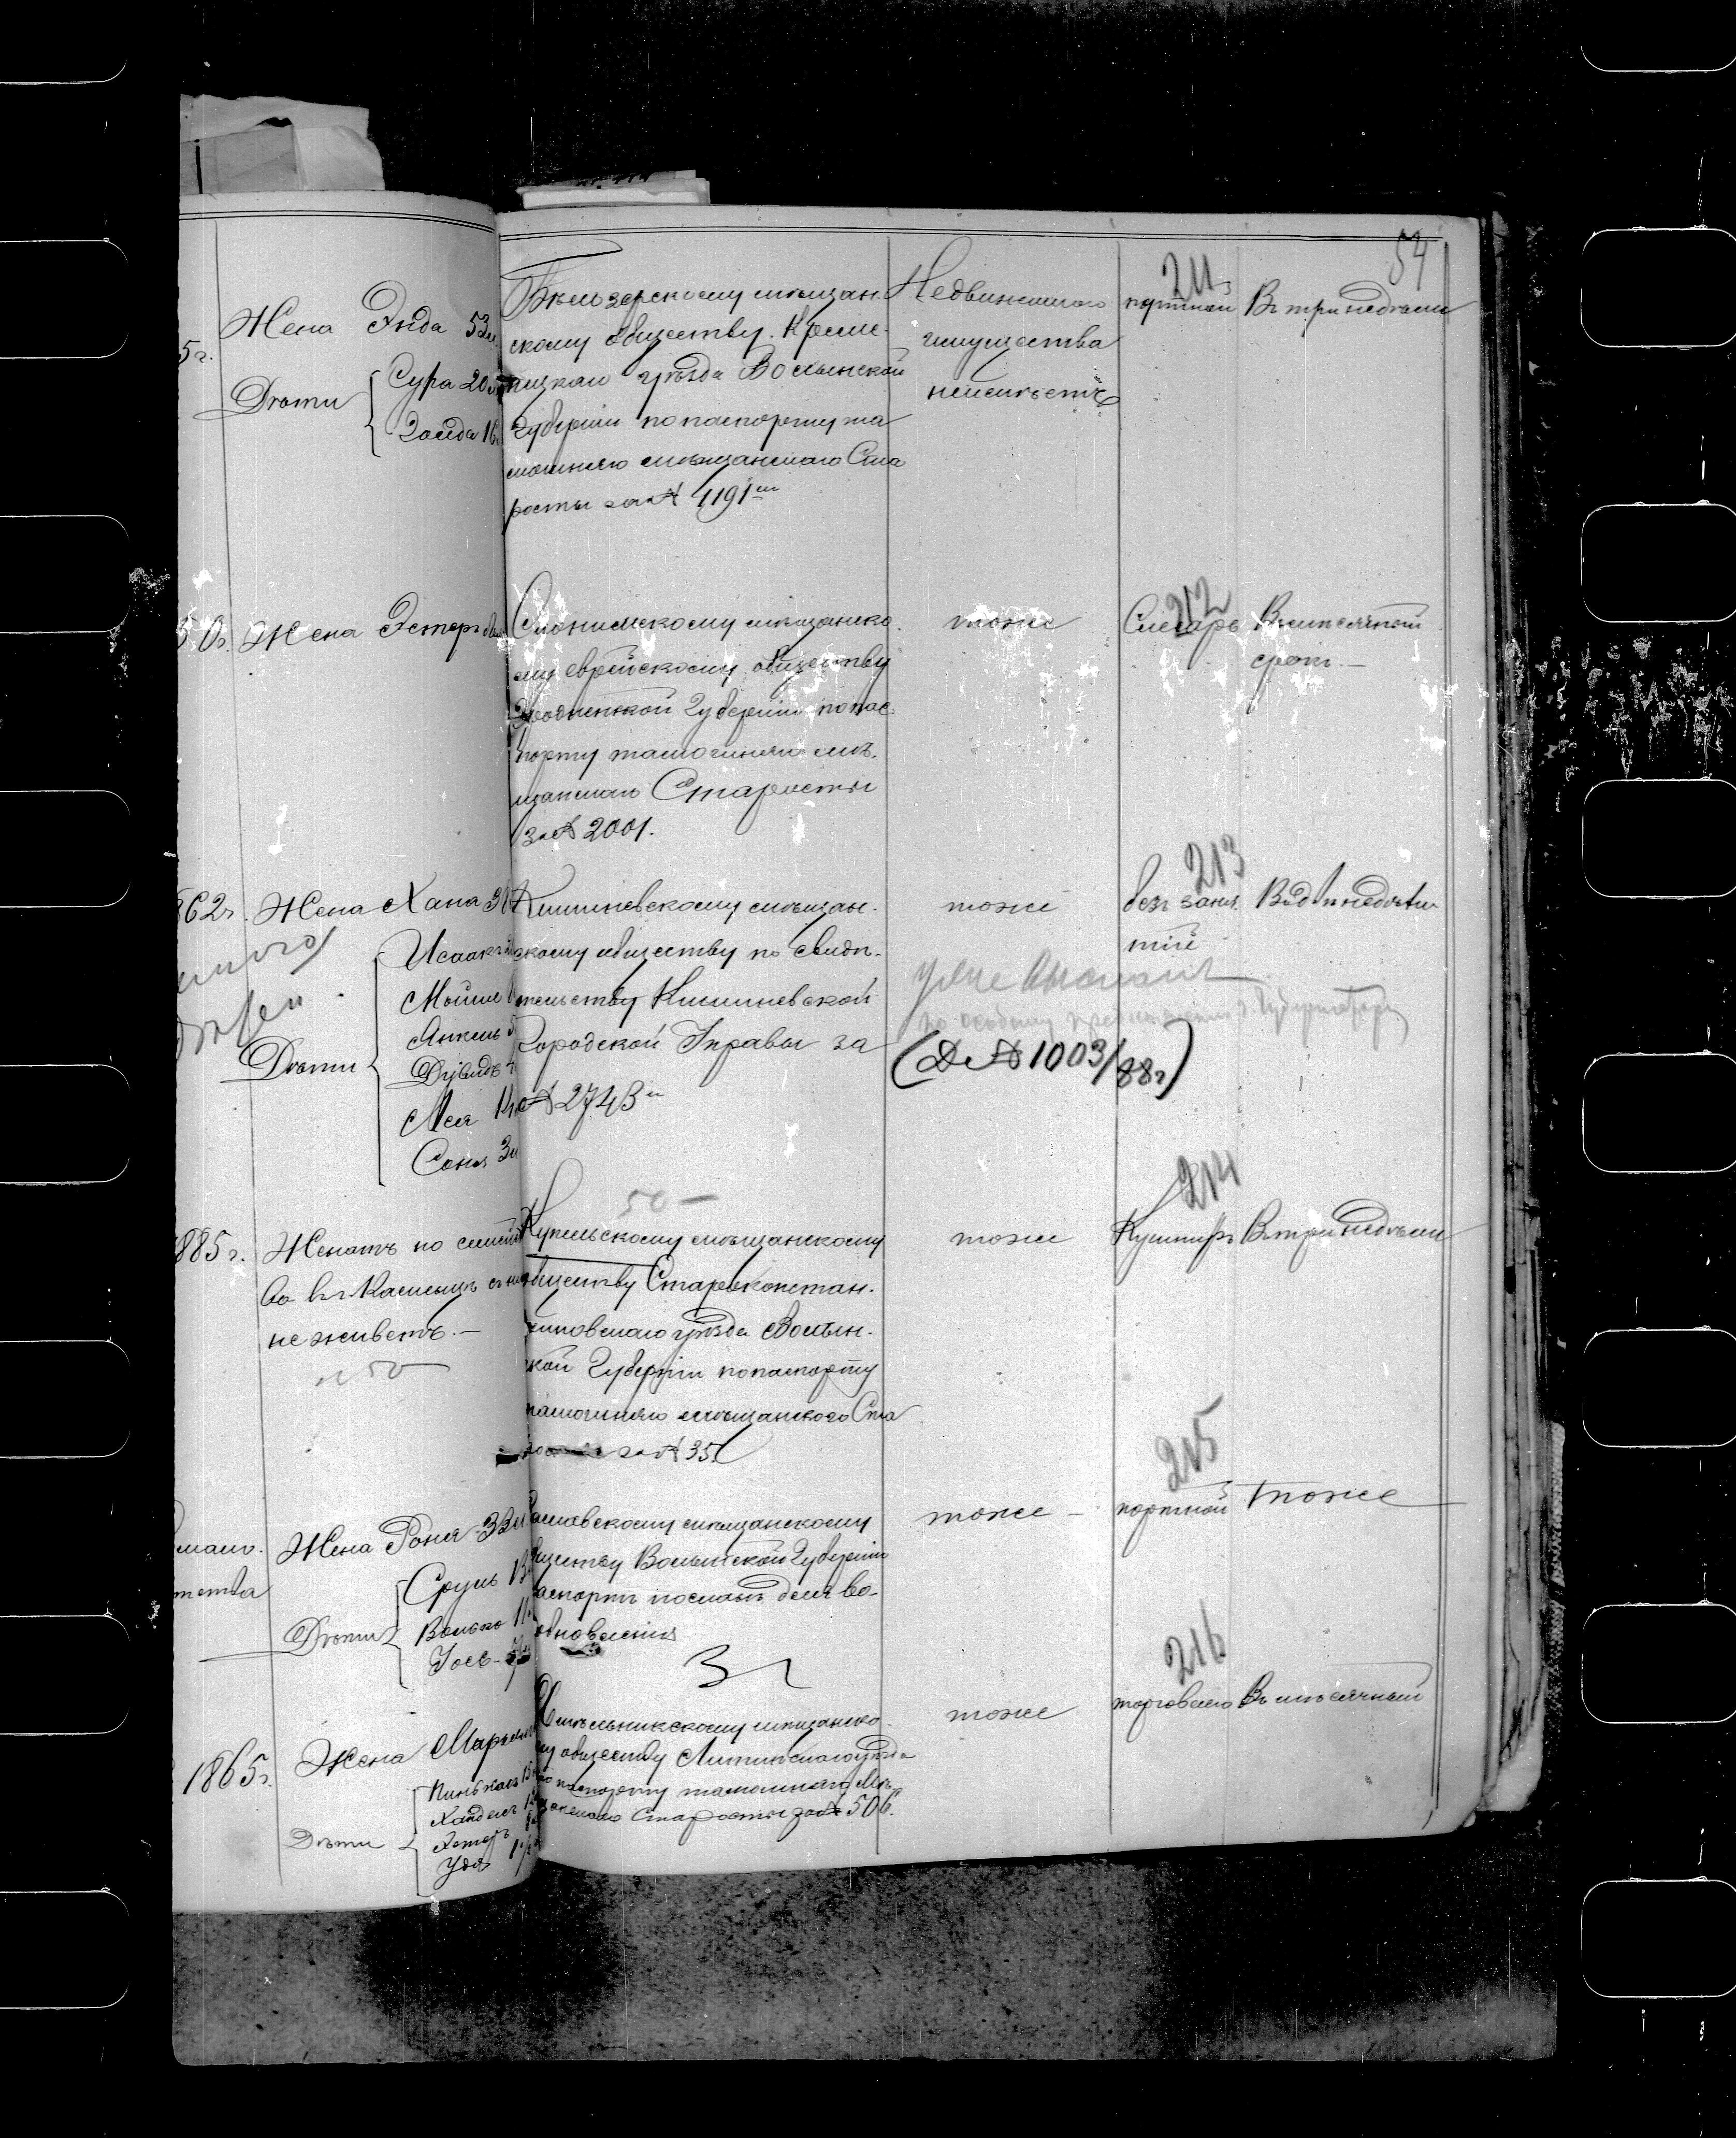 54
5г.
Жена Энда 53 л.
Дѣти
Сура 20 л
Зельда 16
Бѣлозерскому мѣщан-
скому обществу. Креме-
нецкаго уѣзда Волынской
Губерніи по паспорту та
мошняго мѣщанскаго Ста
росты за № 1191м
Недвижимого
имущества
неимѣетъ
211
портной
Въ три недѣли
50г. Жена Эстеръ
Слонимскому мѣщанско-
му еврейскому обществу
Гродненской Губерніи по пас-
порту тамошняго мѣ-
щанскаго Старосты
за № 2001.
тоже
212
Слесарь
Въ мѣсячный
срокъ.—
862г. Жена Хана 3
Дѣти
Исаакъ
Мойше
Янкель 5
Дувидъ
Лея 14
Соня 3
Кишиневскому мѣщан-
скому обществу по свидѣ-
тельству Кишиневской
Городской Управы за
№ 2743м
тоже
213
безъ заня
тій
Въ двѣ недѣли
уже высланъ
по особому предписанію г. Губернатора
(Д. № 1003/88г)
50 —
885г. Женатъ но
во въ Каменцѣ
не живетъ.—
№ 50
Купельскому мѣщанскому
обществу Староконстан-
тиновскаго уѣзда Волын-
ской Губерніи по паспорту
тамошняго мѣщанского Ста
за № 35
тоже
214
Кушниръ
Въ три недѣли
Жена Роня 32 л
Дѣти
Сруль 13
Волько 11
Іось
Заславскому мѣщанскому
обществу Волынской Губерніи
паспортъ посланъ для во-
зобновленія
тоже —
215
портной
тоже
1865г.
Жена Маріемъ
Дѣти
Пинькасъ 13
Хандель 12
Эстеръ
Удя 1½
Хмѣльникскому мѣщанско-
му обществу Литинскаго уѣзда
по паспорту тамошняго Мѣ-
щанскаго Старосты за № 506.
тоже
216
торговлею
Въ мѣсячный